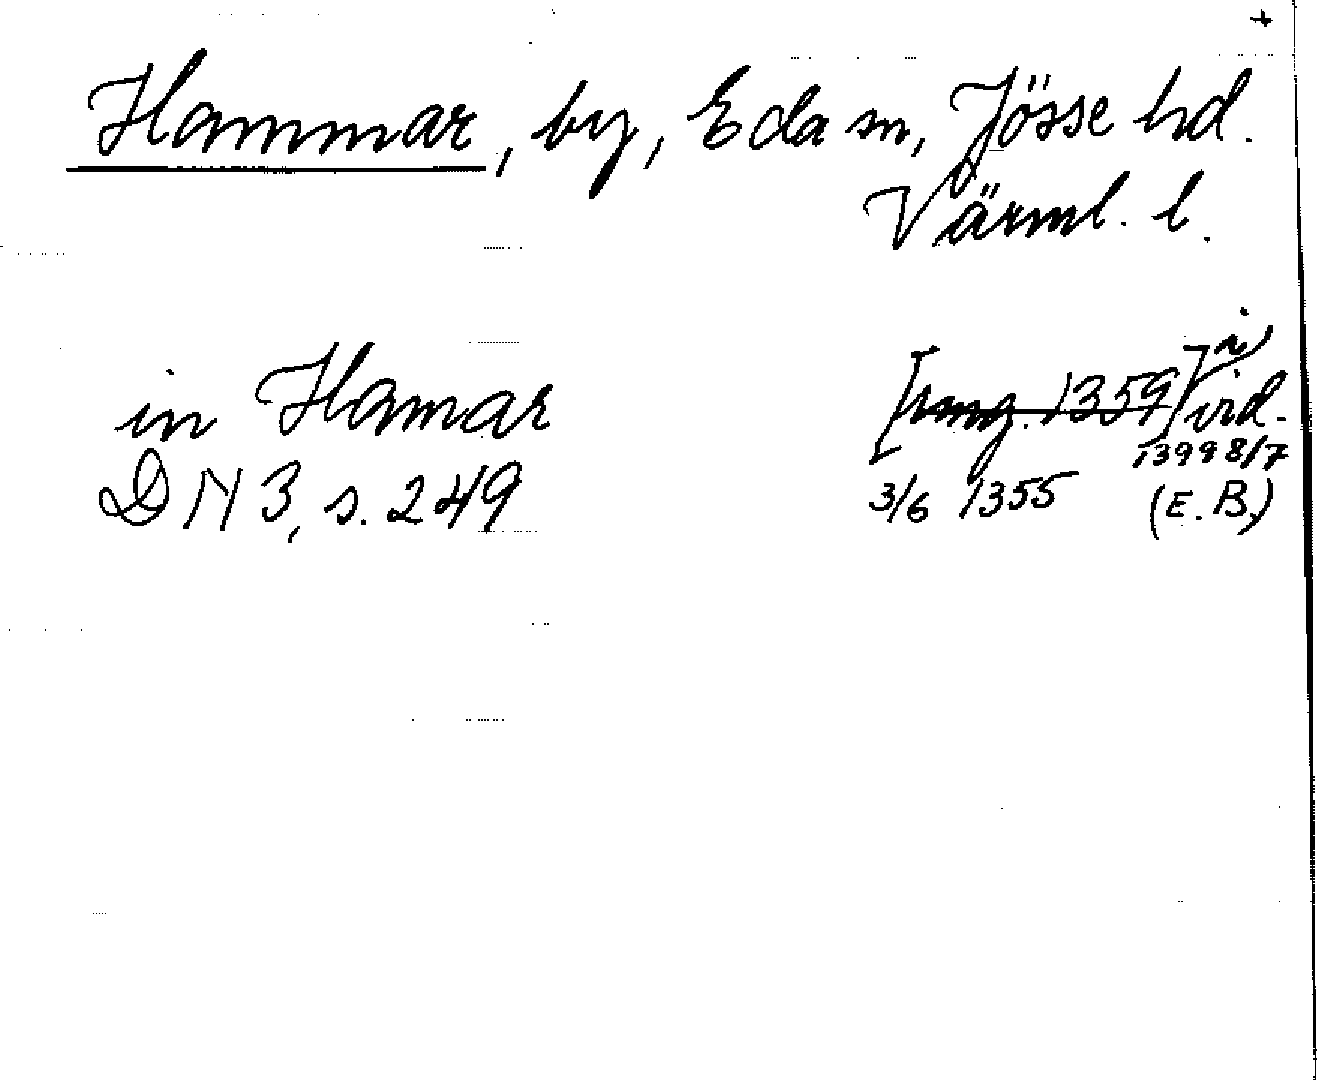 +
Hammar, by, Eda sn, Jösse hd.
Värml. l.
in Hamar [omg. 1359] i) vid.
1399 8/7
DN 3, s. 249 3/6 1355 (E. B.)